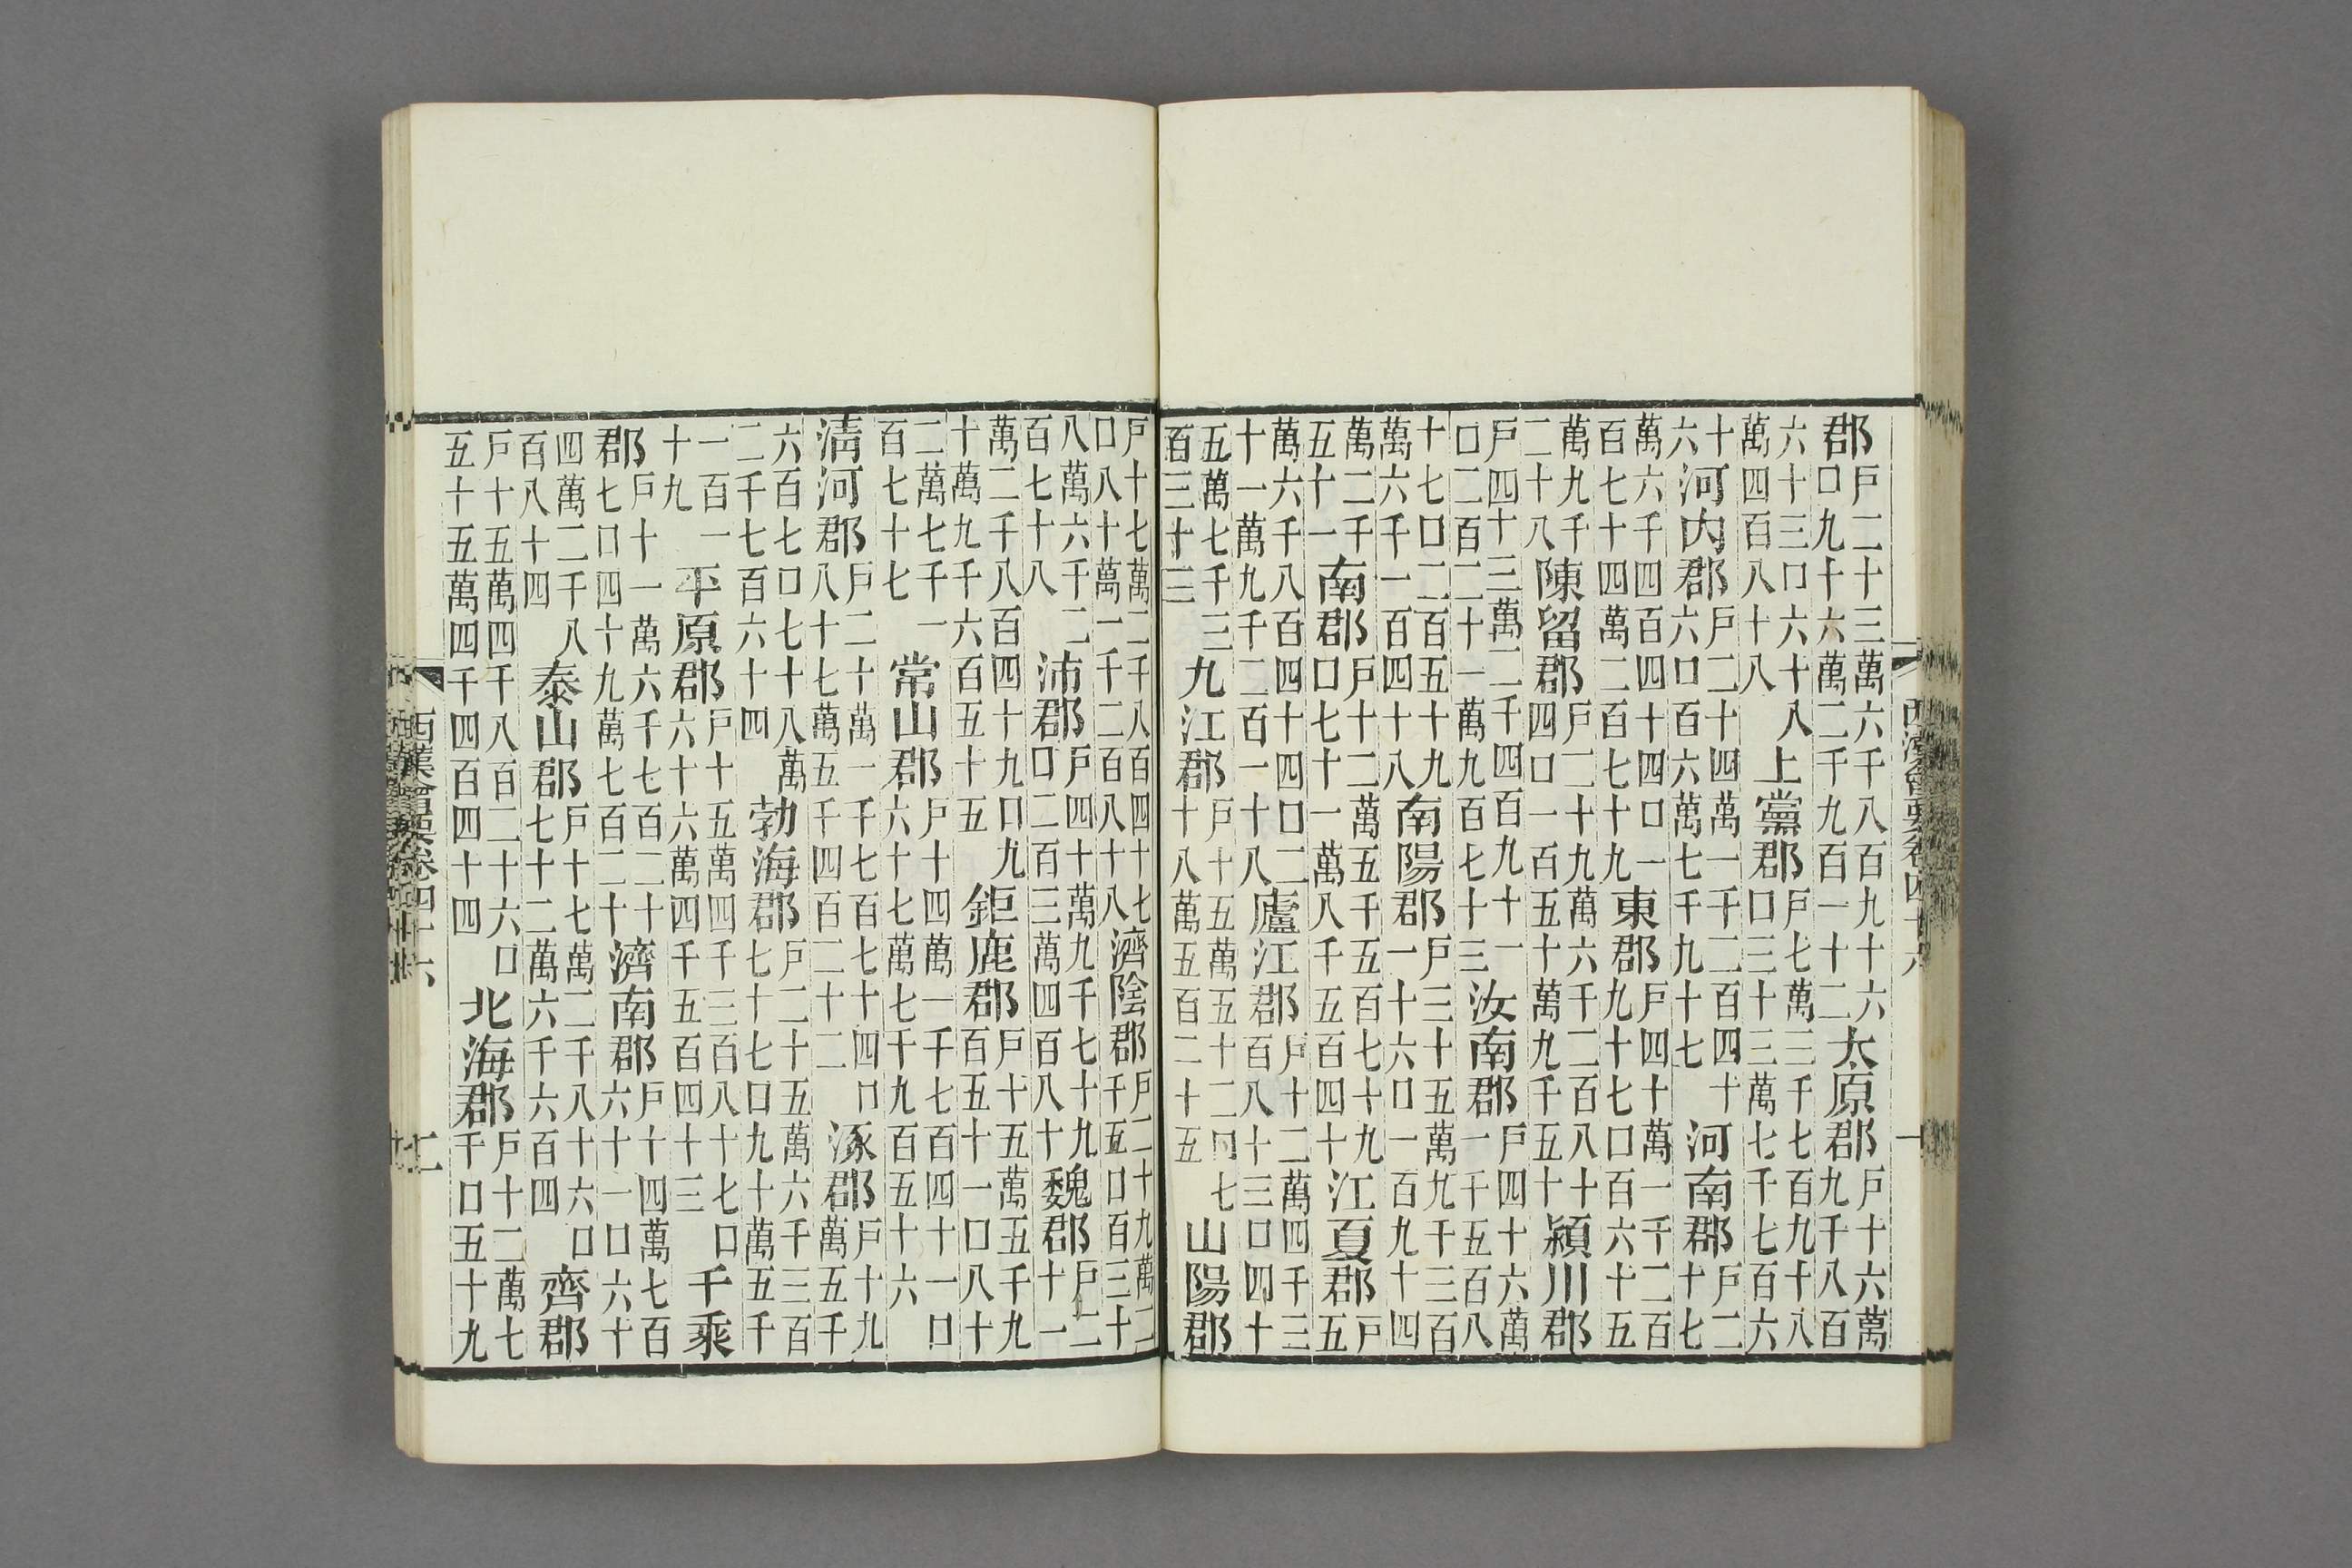 郡戶二十三萬六千八百九十六口九十六萬二千九百一十二太原郡戶十六萬九千八百
六十三口六十八萬四百八十八上黨郡戶七萬三千七百九十八口三十三萬七千七百六
十六河內郡戶二十四萬一千二百四十六口百六萬七千九十七河南郡戶二十七
萬六千四百四十四口一百七十四萬二百七十九東郡戶四十萬一千二百九十七口百六十五
萬九千二十八陳留郡戶二十九萬六千二百八十四口一百五十萬九千五十潁川郡
戶四十三萬二千四百九十一口二百二十一萬九百七十三汝南郡戶四十六萬一千五百八
十七口二百五十九萬六千一百四十八南陽郡戶三十五萬九千三百一十六口一百九十四
萬二千五十一南郡戶十二萬五千五百七十九口七十一萬八千五百四十江夏郡戶五
萬六千八百四十四口二十一萬九千二百一十八廬江郡戶十二萬四千三百八十三口四十
五萬七千三百三十三九江郡戶十五萬五十二口七十八萬五百二十五山陽郡
西漢會要卷四十六
戶十七萬二千八百四十七口八十萬一千二百八十八濟陰郡戶二十九萬二千五口百三十
八萬六千二百七十八沛郡戶四十萬九千七十九口二百三萬四百八十魏郡戶二十一
萬二千八百四十九口九十萬九千六百五十五鉅鹿郡戶十五萬五千九百五十一口八十
二萬七千一百七十七常山郡戶十四萬一千七百四十一口六十七萬七千九百五十六
清河郡戶二十萬一千七百七十四口八十七萬五千四百二十二涿郡戶十九萬五千
六百七口七十八萬二千七百六十四勃海郡戶二十五萬六千三百七十七口九十萬五千
一百一十九平原郡戶十五萬四千三百八十七口六十六萬四千五百四十三千乘
郡戶十一萬六千七百二十七口四十九萬七百二十濟南郡戶十四萬七百六十一口六十
四萬二千八百八十四泰山郡戶十七萬二千八十六口七十二萬六千六百四齊郡
戶十五萬四千八百二十六口五十五萬四千四百四十四北海郡戶十二萬七千口五十九
西漢會要卷四十六 二